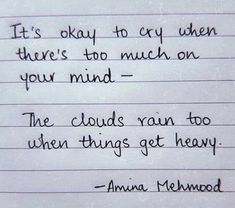 It's okay to cry when
there's too much on
your mind —
The clouds rain too
when things get heavy.
—Amina Mehmood